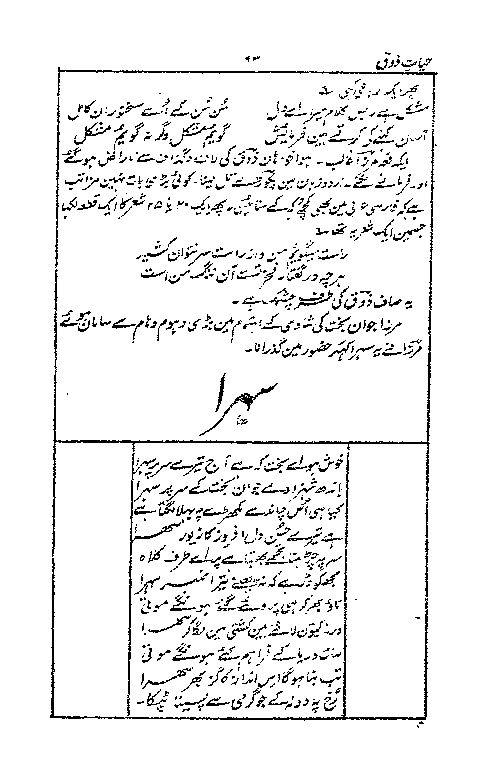 حیات ذوق ۹۳
پھر ایک رباعی کہی ؎
مشکل ہے زبس کلام میرا اے دل سن سن کے اُسے سخنوران کامل
آسان کہنے کی کرتے ہین فرمایش گویم مشکل وگرنہ گویم مشکل
ایک دفعہ مرزا غالب۔ ہوا خواہان ذوق کی لاف وگذاف سے ناراض ہو گئے
اور فرمانے لگے۔ اردو زبان مین کوئی بڑی بات نہین مزا تب
ہے کہ فارسی مین بھی کچھ کہہ کے سنائین۔ پھر ایک ۲۰ یا ۲۵ شعر کا ایک قطعہ لکھا
جسمین ایک شعر یہ تھا ؎
راست میگویم من و از راست سر نتوان کشید
ہرچہ در گفتار فخر تست آن ننگ من است
یہ صاف ذوق کی طرف چشمک ہے۔
مرزا جوان بخت کی شادی کے اہتمام مین بڑی دہوم دہام سے سامان ہوئے
مرزا نے یہ سہرا کہکر حضور مین گذرانا۔
سہرا
خوش ہو اے بخت کہ ہے آج تیرے سر پر سہرا
باندھ شہزادے جوان بخت کے سر پر سہرا
کیا ہی اس چاند سے مکھڑے پہ بھلا لگتا ہے
ہے تیرے حسن دل افروز کا زیور سہرا
سر پہ چڑھنا تجھے پھبتا ہے پر اے طرف کلاہ
مجھکو ڈر ہے کہ نہ چھینے تیرا نمبر سہرا
ناؤ بھر کر ہی پروئے گئے ہونگے موتی
ورنہ کیون لائے ہین کشتی مین لگا کر سہرا
سات دریا کے فراہم کئے ہونگے موتی
تب بنا ہوگا اس انداز کا گز بھر سہرا
رخ پہ دولہ کے جو گرمی سے پسینا ٹپکا۔